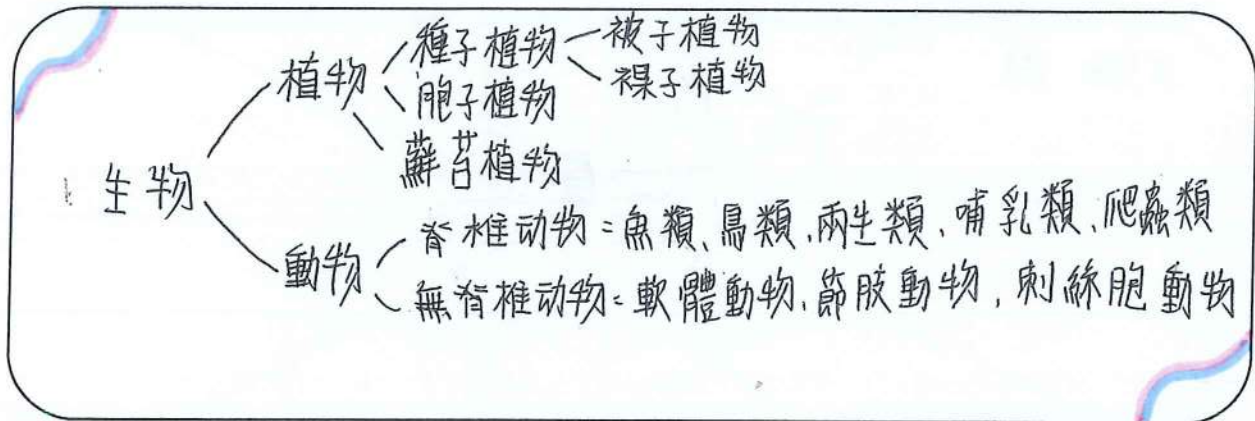 種子植物 被子植物
植物 胞子植物 裸子植物
蘚苔植物
生物
脊椎动物:魚類、鳥類、兩生類、哺乳類、爬蟲類
動物
無脊椎动物:軟體動物、節肢動物、刺絲胞動物